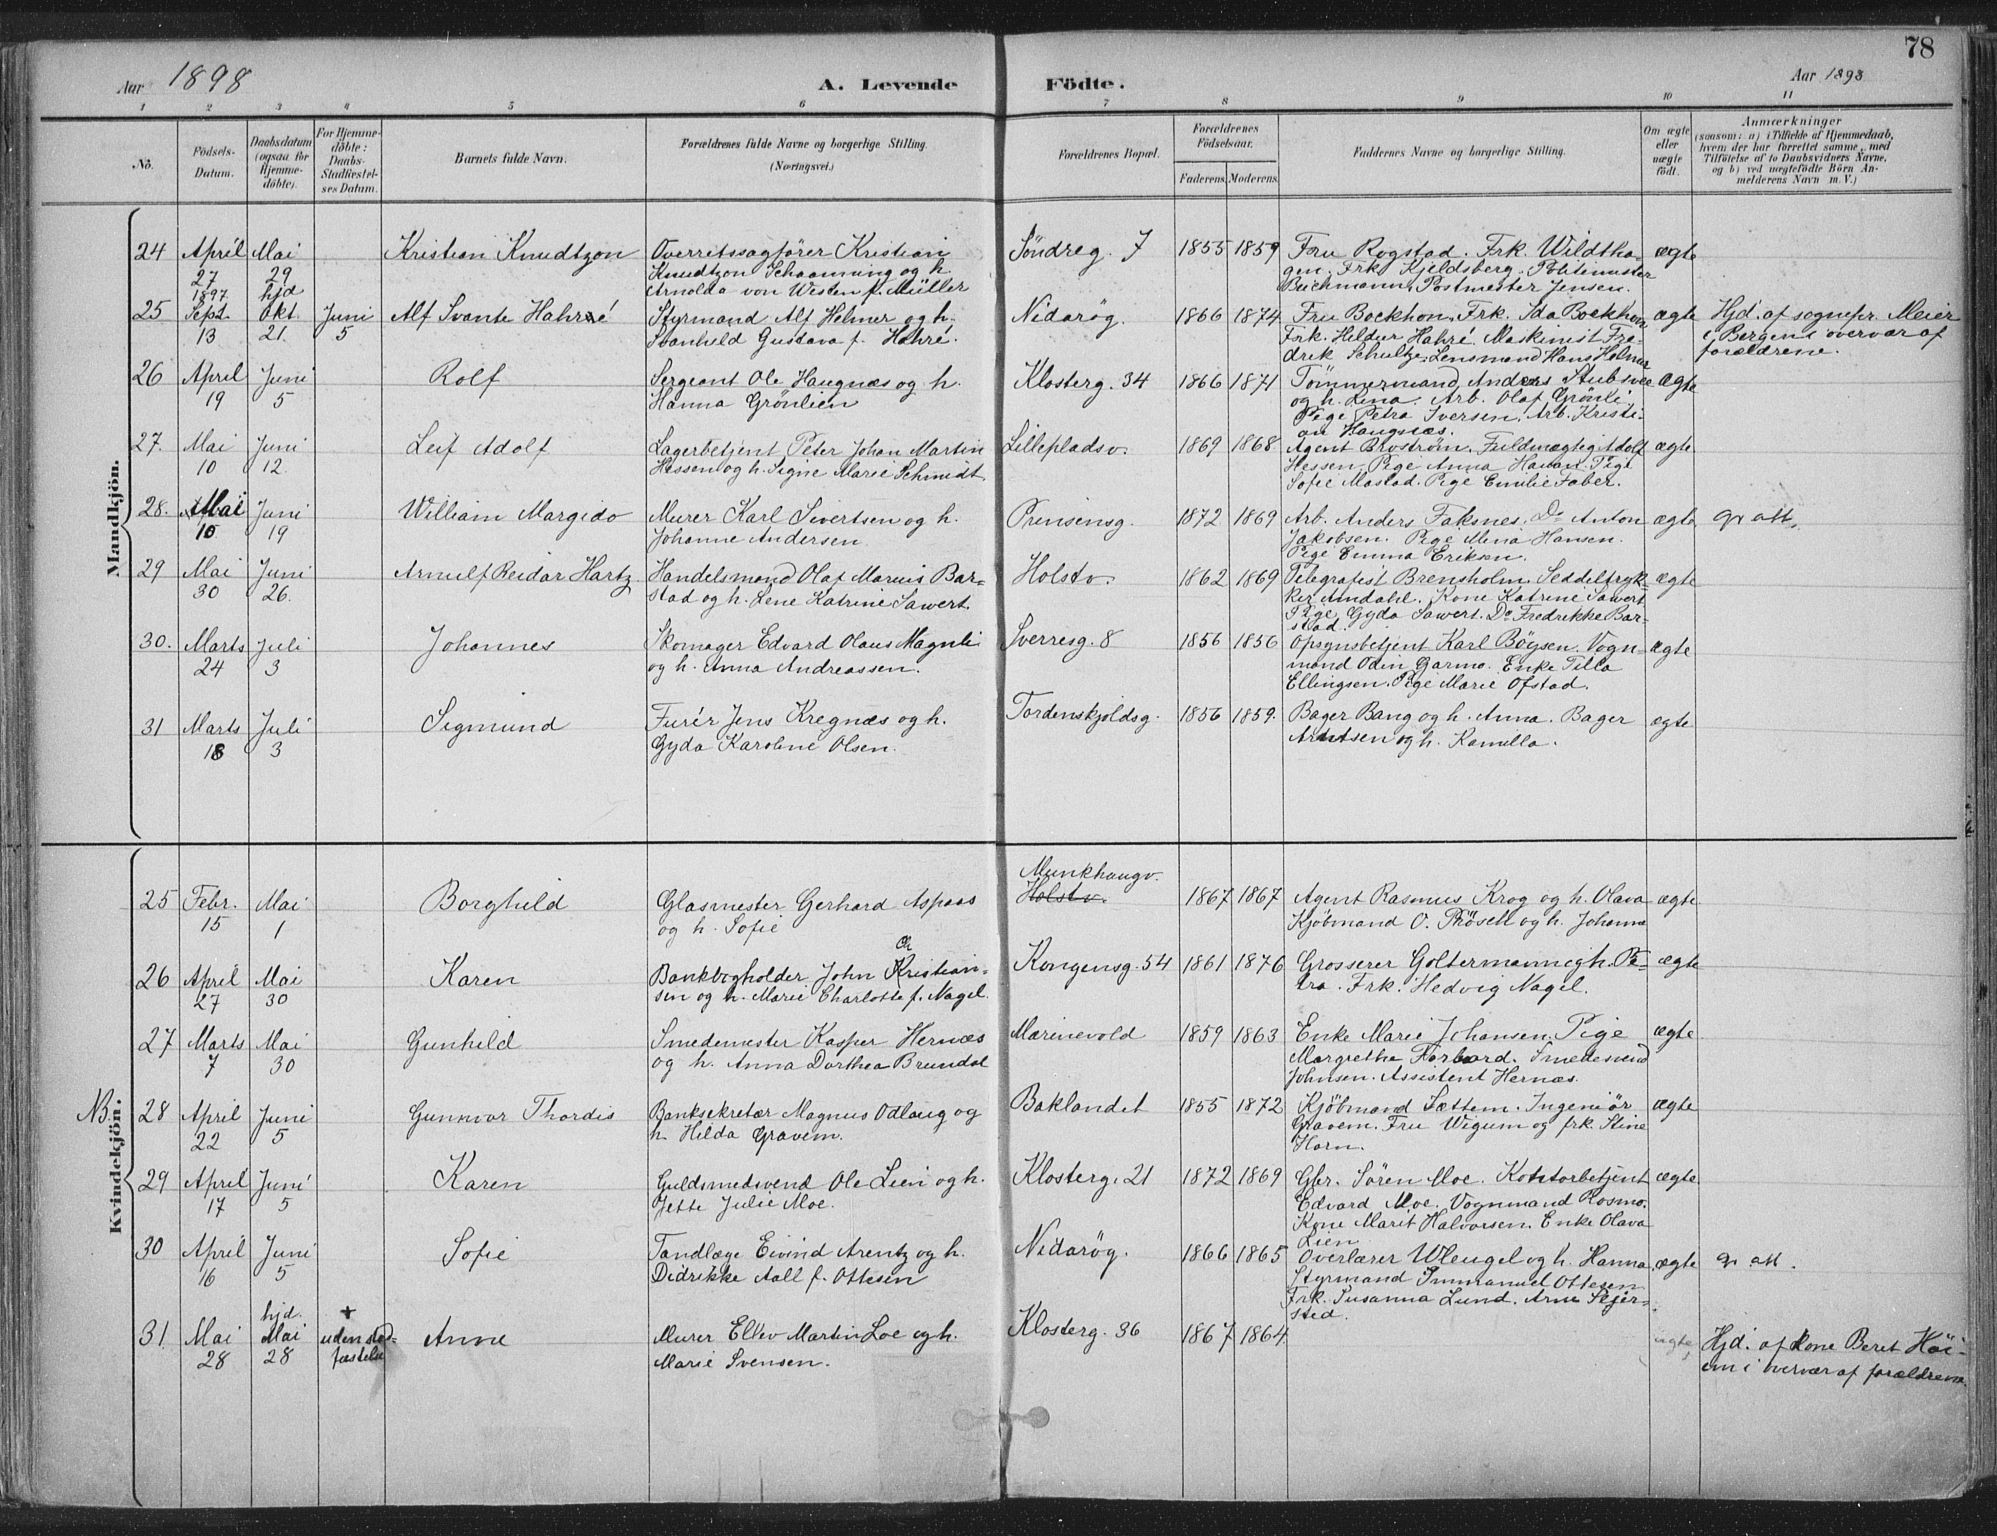 78
Aar 1898
A. Levende
Födte.
Aar 1898
1 2 3 4 5 6 7 8 9 10 11
No.
Födsels-
Datum.
Daabsdatum
(ogsaa for
Hjemme-
döbte).
For Hjemme-
döbte:
Daabs-
Stadfæstel-
ses Datum.
Barnets fulde Navn.
Forældrenes fulde Navne og borgerlige Stilling.
(Næringsvei.)
Forældrenes Bopæl.
Forældrenes
Födselsaar.
Faderens. Moderens.
Faddernes Navne og borgerlige Stilling.
Om ægte
eller
uægte
födt.
Anmærkninger
(saasom: a) i Tilfælde af Hjemmedaab,
hvem der har forrettet samme, med
Tilföielse af to Daabsvidners Navne,
og b) ved uægtefödte Börn An-
melderens Navn m. V.)
Mandkjön.
24 April Mai Kristian Knudtzon Overretssagförer Kristian Söndreg. 7 1855 1859 Fru Rogstad. Frk. Wildtha- ægte
27 29 Knudtzon Schaanning og h. gen. Frk. Kjeldsberg. Politimester
Arnolda von Westen f. Müller Bichmann, Postmester Jensen.
1897 hjd
25 Sept. Okt. Juni Alf Svante Hahré Styrmand Alf Helmer og h. Nidarög. 1866 1874 Fru Bockhon. Frk. Ida Bockhon ægte Hjd. af sognepr. Meier
13 21. 5 Svanhild Gustava f. Hahré. Frk. Hildur Hahré. Maskinist Fre- i Bergen i overvær af
drik Schultze. Lensmand Hans Holmer forældrene.
26 April Juni Rolf Sergeant Ole Haugnæs og h. Klosterg. 34 1866 1871 Tömmermand Anders Stubsvee ægte
19 5 Hanna Grönlien og h. Lina. Arb. Olaf Grönli
Pige Petra Iversen. Arb. Kristi-
an Haugnæs.
27. Mai Juni Leif Adolf Lagerbetjent Peter Johan Martin Lillepladsv. 1869 1868 Agent Broström. Fuldmægtig Adolf ægte
10 12. Hessen og h. Signe Marie Schmidt Hessen. Pige Anna Havan. Pige
Sofie Mostad. Pige Emilie Faber.
28. Mai Juni William Margido Murer Karl Sivertsen og h. Prinsensg. 1872 1869 Arb. Anders Faksnes. Do Anton ægte gr. att.
10 19 Johanne Andersen. Jakobsen. Pige Mina Hansen.
Pige Emma Eriksen.
29 Mai Juni Arnulf Reidar Hartz Handelsmand Olaf Marius Bar- Holstv. 1862 1869 Telegrafist Brensholm. Seddeltryk- ægte
30 26. stad og h. Lene Katrine Sawert. ker Amdahl. Kone Katrine Sawert
Pige Gyda Sawert. Do Fredrikke Bar-
stad.
30. Marts Juli Johannes Skomager Edvard Olaus Magnli Sverresg. 8 1856 1856 Opsynsbetjent Karl Böysen. Vogn- ægte
24 3 og h. Anna Andreassen. mand Odin Garmo. Enke Tilla
Ellingsen. Pige Marie Ofstad.
31 Marts Juli Sigmund Furér Jens Kregnæs og h. Tordenskjoldsg. 1856 1859. Bager Bang og h. Anna. Bager ægte
18 3 Gyda Karoline Olsen. Arntsen og h. Kamilla.
Kvindekjön.
Munkhaugv.
25 Febr. Mai Borghild Glasmester Gerhard Aspaas Holstv. 1867 1867 Agent Rasmus Krog og h. Olava ægte
15 1 og h. Sofie Kjöbmand O. Thösen og h. Johanna
Ch
26 April Mai Karen Bankbogholder John Kristian- Kongensg. 54 1861 1876 Grosserer Goltermann og h. Pe- ægte
27 30 sen og h. Marie Charlotte f. Nagel. tra. Frk. Hedvig Nagel.
27 Marts Mai Gunhild Smedemester Kasper Hernæs Marinevold 1859 1863 Enke Marie Johansen. Pige ægte
7 30 og h. Anna Dorthea Brundal Margrethe Forbord. Smedesvend
Johnsen. Assistent Hernæs.
NB. 28 April Juni Gunnvor Thordis Banksekretær Magnus Odlaug og Baklandet 1855 1872 Kjöbmand Sættem. Ingeniör ægte
22 5 h. Hilda Gravem. Gravem. Fru Wigum og frk. Stine
Horn.
29 April Juni Karen Guldsmedsvend Ole Lien og h. Klosterg. 21 1872 1869 Gbr. Sören Moe. Kontorbetjent ægte
17 5 Jette Julie Moe. Edvard Moe. Vognmand Rosmo.
Kone Marit Halvorsen. Enke Olava
Lien
30 April Juni Sofie Tandlæge Eivind Arentz og h. Nidarög. 1866 1865 Overlærer Wleugel og h. Hanna ægte gr. att.
16 5 Didrikke Aall f. Ottesen Styrmand Immanuel Ottesen
Frk. Susanna Lund. Arne Sejer-
sted.
hjd. +
31. Mai Mai uden stad- Anne Murer Ellev Martin Loe og h. Klosterg. 36 1867 1864 ægte Hjd. af kone Beret Höi-
28 28 fæstelse Marie Svensen. em i overvær af forældrene.